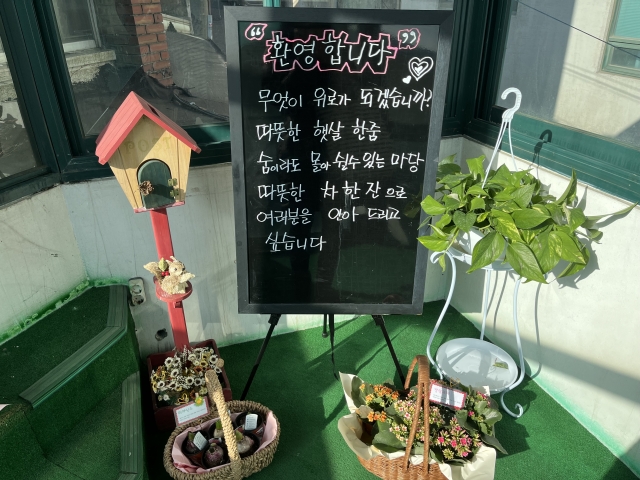 “환영합니다”
무엇이 위로가 되겠습니까?
따뜻한 햇살 한줌
숨이라도 몰아 쉴수 있는 마당
따뜻한 차 한 잔으로
여러분을 안아 드리고
싶습니다